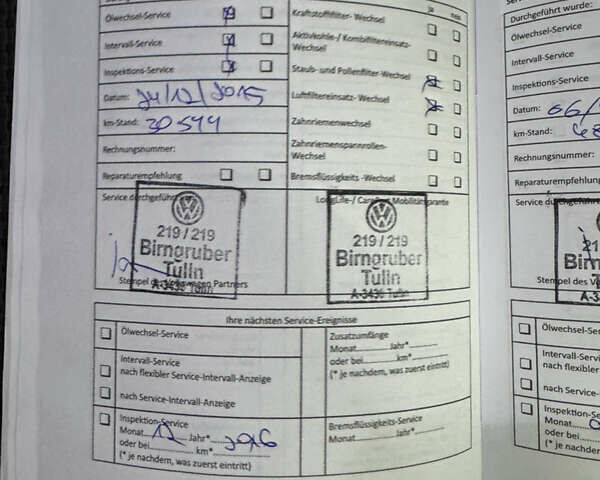 Durchgeführt wurde:
ja nein
Ölwechsel-Service
Kraftstofffilter- Wechsel
Intervall-Service
Aktivkohle-/ Kombifiltereinsatz-
Wechsel
Inspektions-Service
Staub- und Pollenfilter-Wechsel
Datum: 24/12/2015
Luftfiltereinsatz- Wechsel
km-Stand: 30544
Zahnriemenwechsel
Rechnungsnummer:
Zahnriemenspannrollen-
Wechsel
Reparaturempfehlung
Bremsflüssigkeits -Wechsel
Service durchgeführt
LongLife-/
219 / 219
Birngruber
Tulln
A-3430 Tulln
219 / 219
Birngruber
Tulln
A-3430 Tulln
Stempel des Volkswagen Partners
Ihre nächsten Service-Ereignisse
Ölwechsel-Service
Zusatzumfänge
Monat Jahr*
oder bei km*
(* je nachdem, was zuerst eintritt)
Intervall-Service
nach flexibler Service-Intervall-Anzeige
nach Service-Intervall-Anzeige
Inspektion-Service
Monat 12 Jahr* 2016
oder bei km*
(* je nachdem, was zuerst eintritt)
Bremsflüssigkeits-Service
Monat Jahr*
Ölwechsel-Service
Intervall-Service
Inspektions-Service
Datum:
km-Stand:
Rechnungsnummer:
Reparaturempfehlung
Service durchgeführt
Stempel des
Ölwechsel-Servi
Intervall-Servi
nach flexibel
nach Service-
Inspektion-S
Monat
oder bei
(* je nachdem